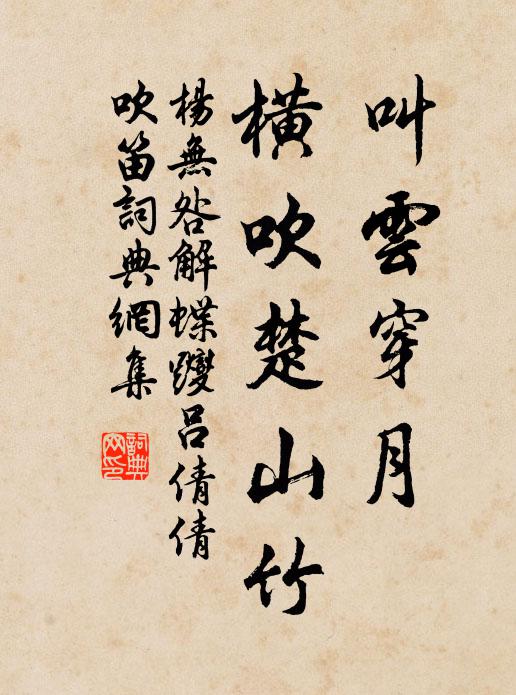 叫雲穿月
橫吹楚山竹
楊無咎解蝶躞呂倩倩
吹笛詞典網集
詞典
网印